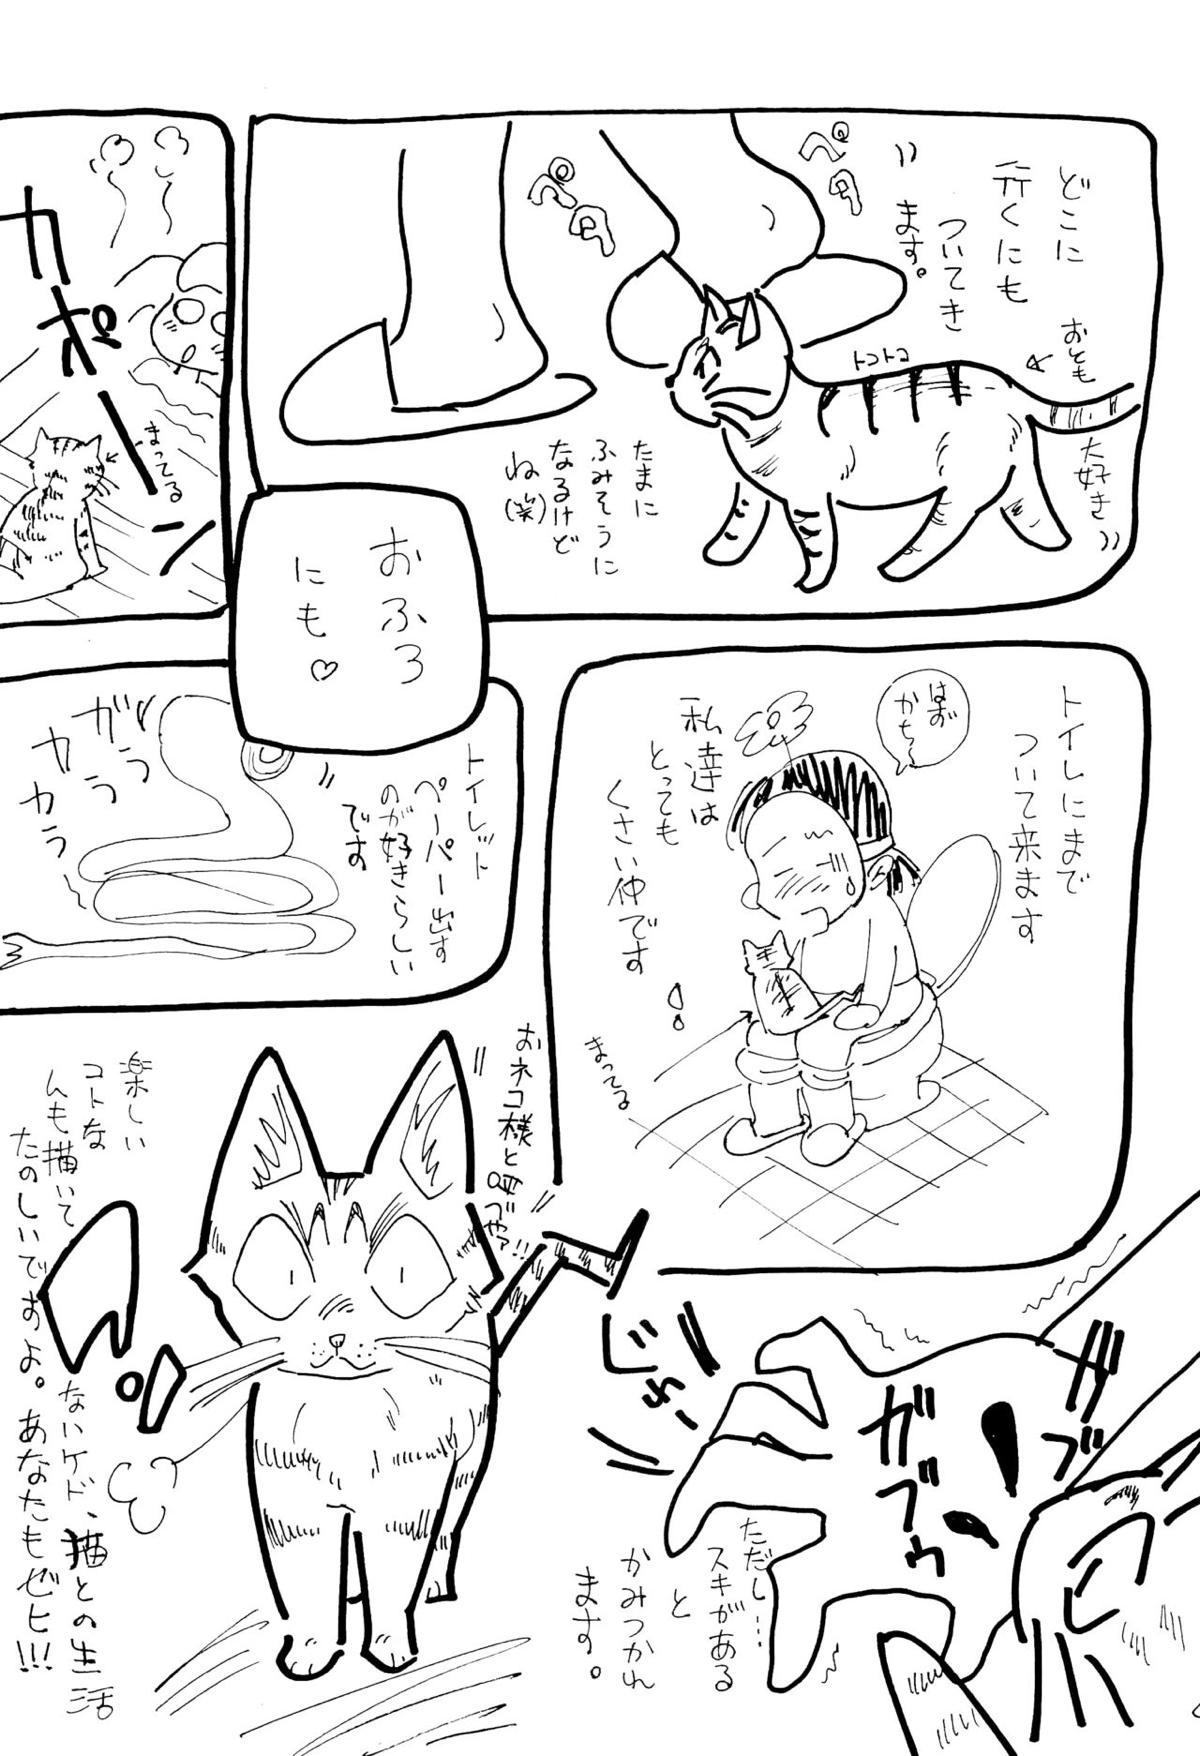 どこに
行くにも
ついてき
ます。
ペタ
ペタ
おとも
大好き
トコトコ
たまに
ふみそうに
なるけど
ね(笑)
おふろ
にも♡
カポーン
まってる
トイレにまで
ついて来ます
はおかち〜
私達は
とっても
くさい仲です
まってる
トイレット
ペーパー出す
のが好きらしい
です
ガラ
ガラ
カラ
カラ
ただし…
スキがある
と
かみつかれ
ます。
ガブ
ガブゥ
じわー
おネコ様と呼べやァ!!
楽しい
コトな
んも描いて
ないケド、猫との生活
たのしいですよ。あなたもぜヒ!!!